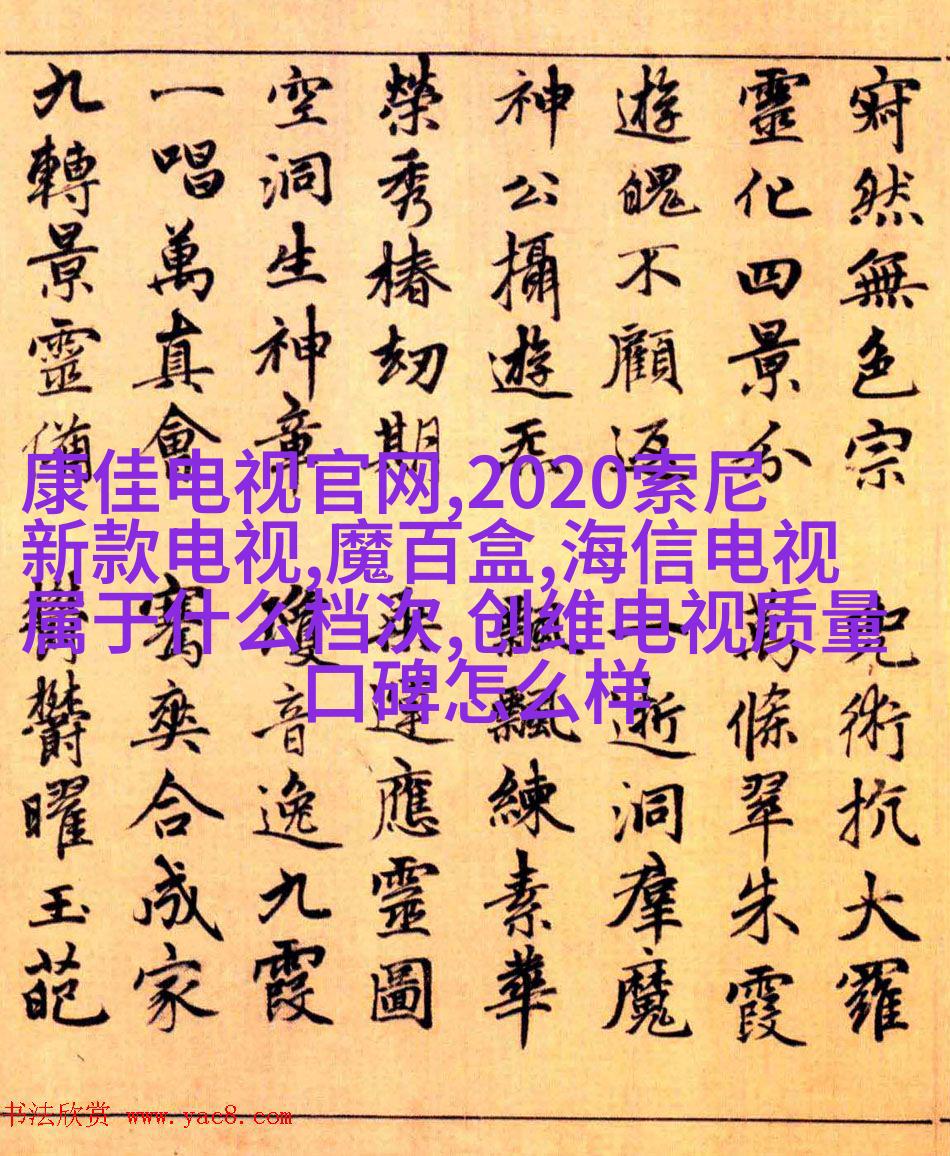 寂然無色宗 兜術抗大羅
靈化四景分 萬條翠朱霞
遊魄不顧返 一逝洞群魔
神公攝遊炁 飄飄練素華
榮秀椿劫期 應靈圖
空洞生神章 瓊音逸九霞
一唱萬真會 騫爽合成家
九轉景靈備 欝欝曜玉葩
康佳电视官网,2020索尼
新款电视,魔百盒,海信电视
属于什么档次,创维电视质量
口碑怎么样
书法欣赏 www.yac8.com